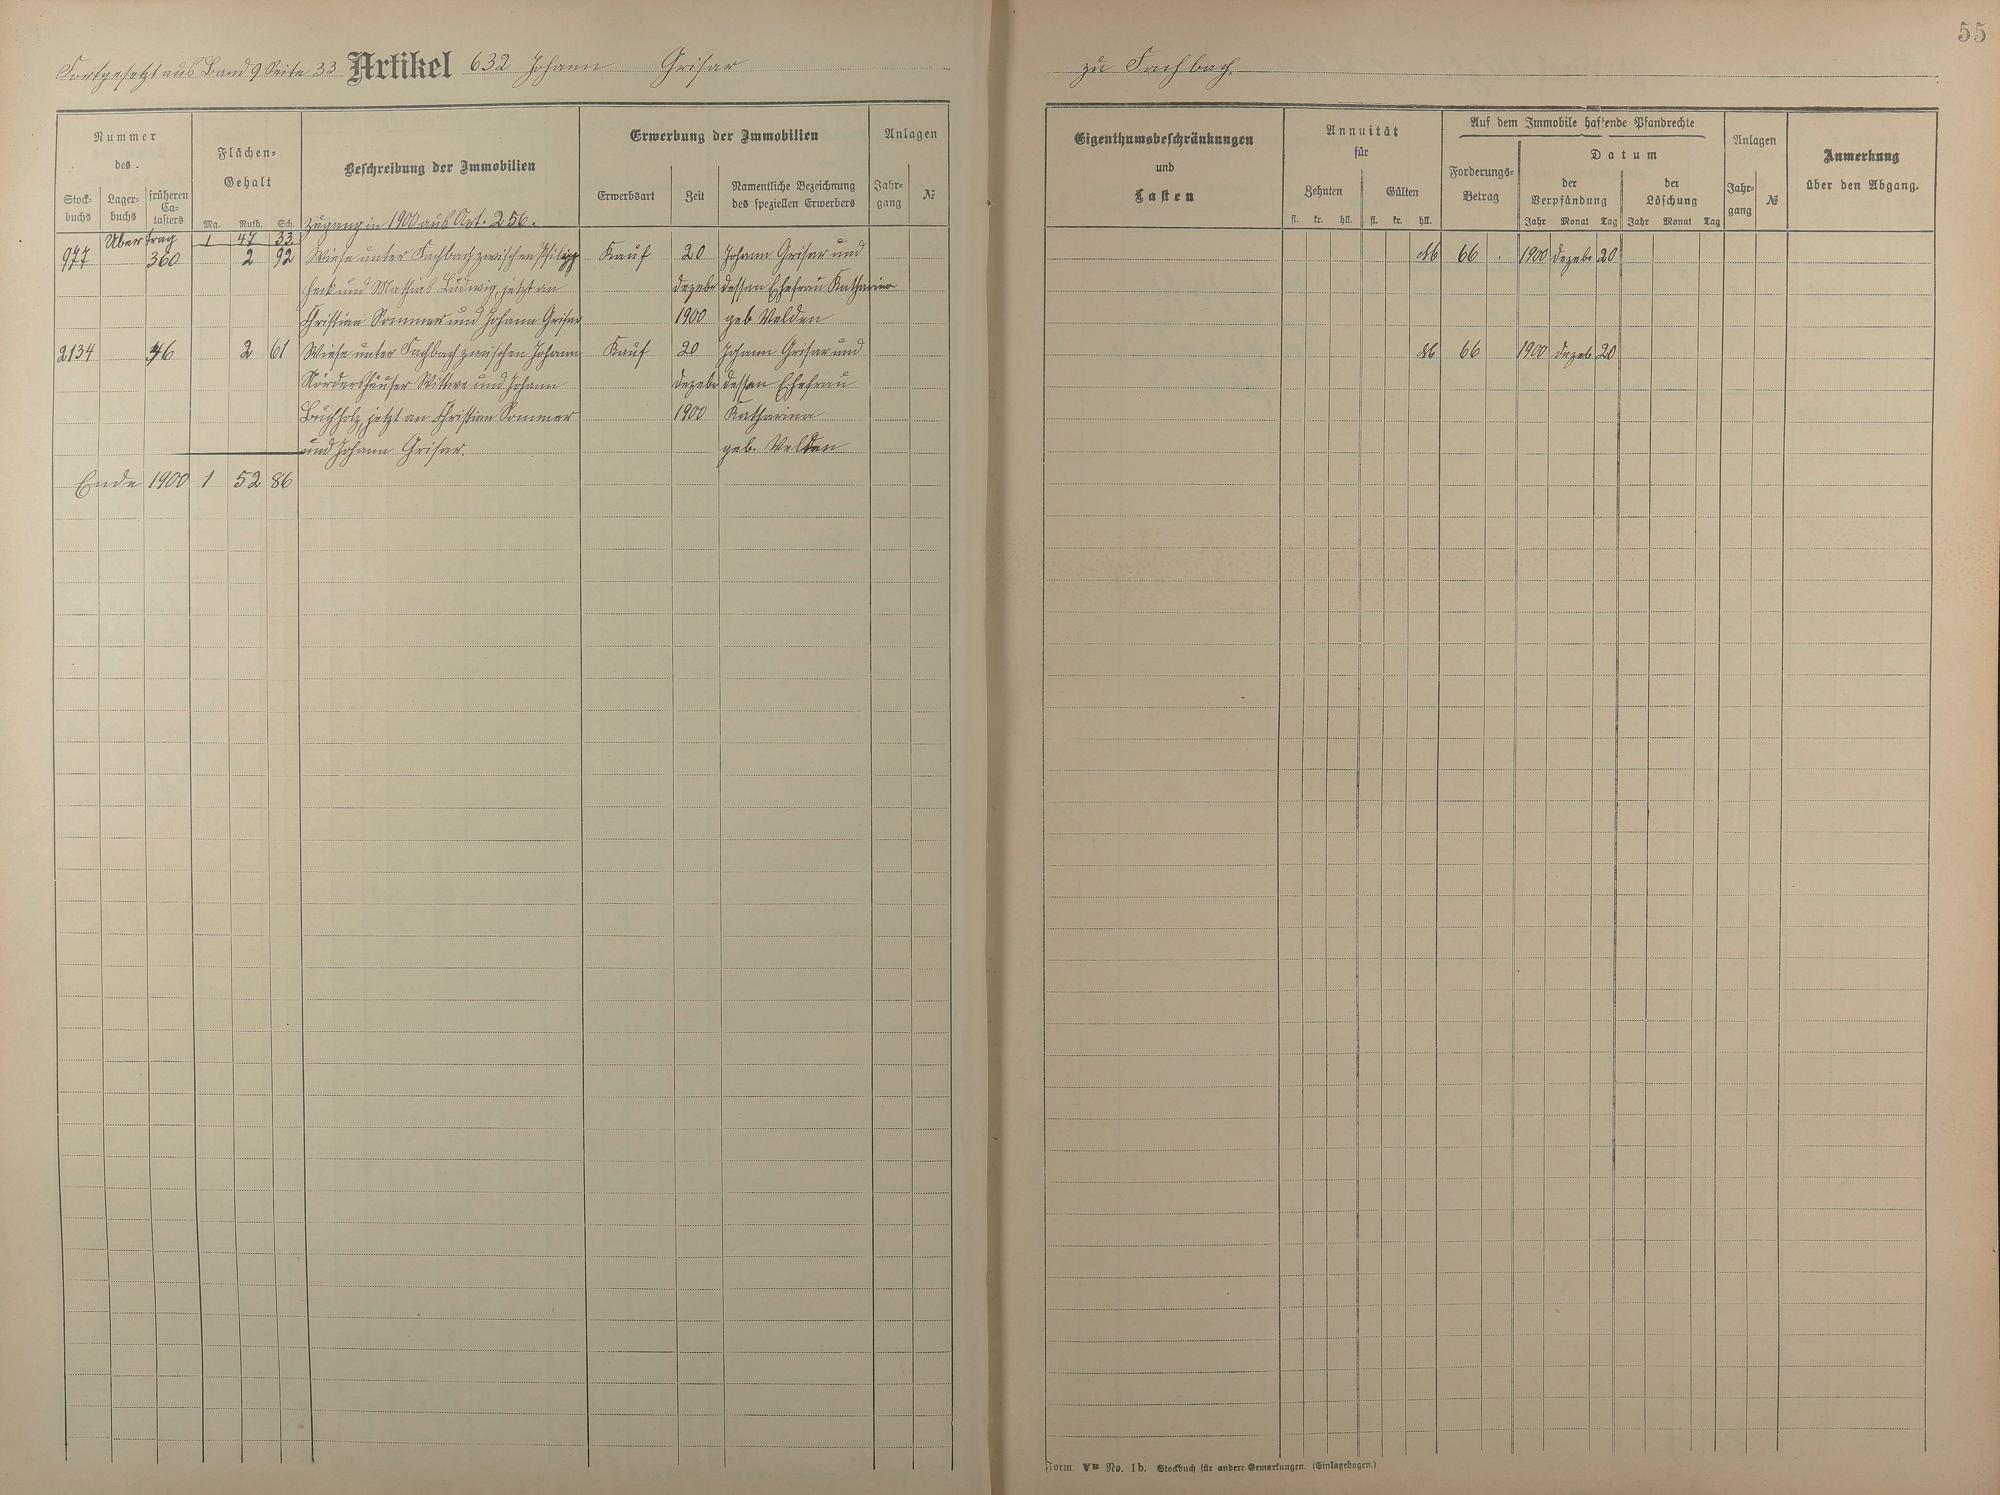 55
Fortgesetzt aus Band 9 Seite 33 Artikel 632 Johann Grisar
zu Fachbach.
Nummer
des
Stock-
buchs
Lager-
buchs
früheren
Ca-
tasters
Flächen-
Gehalt
Mg. Ruth. Sch.
Beschreibung der Immobilien
Erwerbung der Immobilien
Erwerbsart
Zeit
Namentliche Bezeichnung
des speziellen Erwerbers
Anlagen
Jahr-
gang
№
Eigenthumsbeschränkungen
und
Lasten
Annuität
für
Zehnten
Gülten
fl. kr. hll. fl. kr. hll.
Auf dem Immobile haftende Pfandrechte
Forderungs-
Betrag
Datum
der
Verpfändung
der
Löschung
Jahr Monat Tag Jahr Monat Tag
Anlagen
Jahr-
gang
№
Anmerkung
über den Abgang.
Zugang in 1900 aus Art. 256.
Übertrag 1 47 33
977 360 2 92 Wiese unter Fachbach zwischen Philipp Kauf 20 Johann Grisar und M 66 . 1900 Dezebr 20
Heck und Mathias Ludwig, jetzt an Dezebr dessen Ehefrau Katharina
Christian Sommer und Johann Grisar 1900 geb Welden
2134 46 2 61 Wiese unter Fachbach zwischen Johann Kauf 20 Johann Grisar und M 66 1900 Dezeb 20
Nördershäuser Wittwe und Johann Dezebr dessen Ehefrau
Buchholz, jetzt an Christian Sommer 1900 Katharina
und Johann Grisar. geb. Welden
Ende 1900 1 52 86
Form. VB No. 1b. Stockbuch für andere Gemarkungen. (Einlagebogen.)